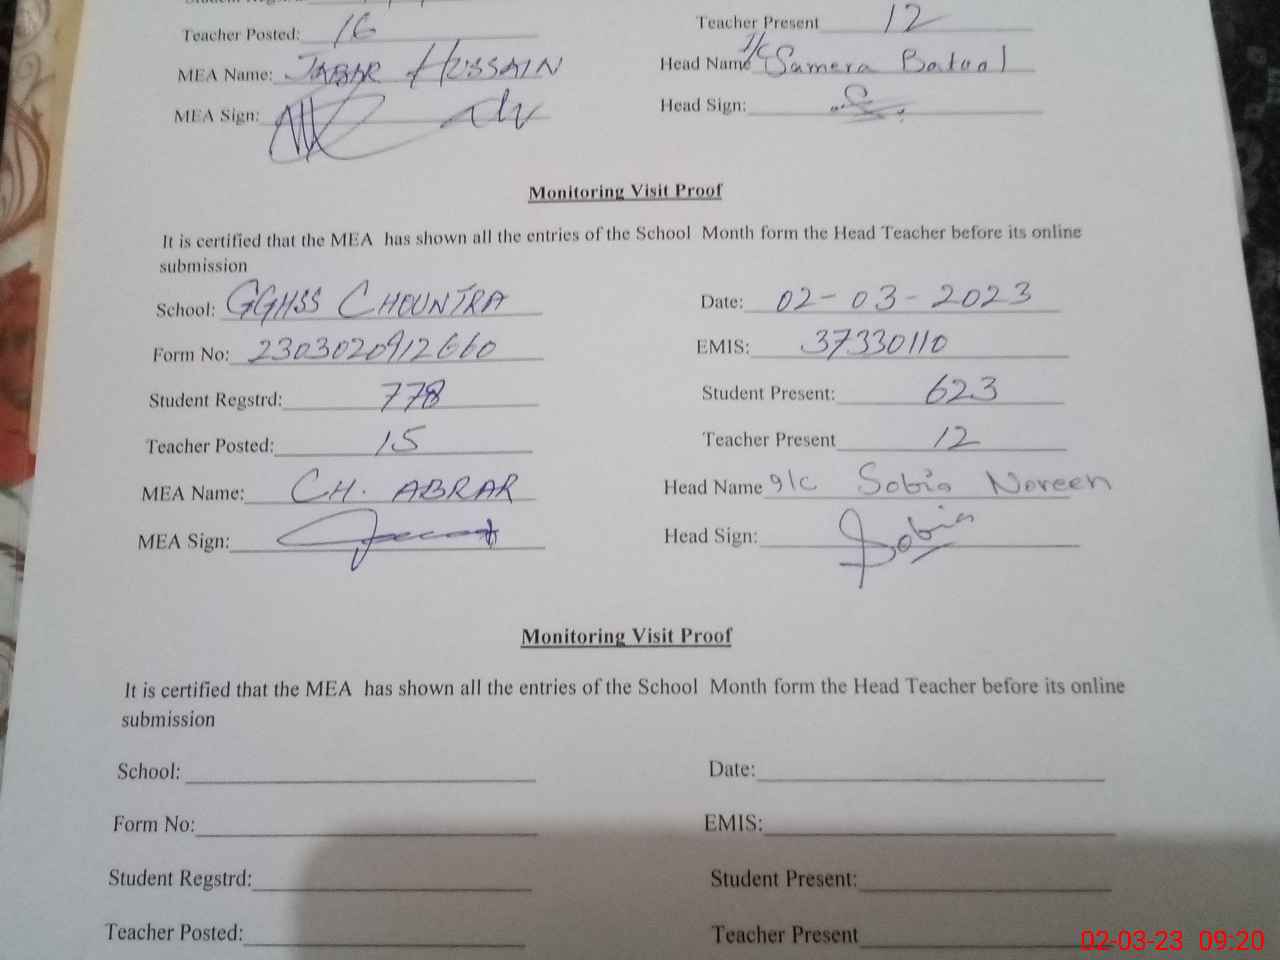 Teacher Posted: 16 Teacher Present 12
MEA Name: JABAR HUSSAIN Head Name I/C Samera Batool
MEA Sign: Head Sign:
Monitoring Visit Proof
It is certified that the MEA has shown all the entries of the School Month form the Head Teacher before its online
submission
School: GGHSS CHOUNTRA Date: 02-03-2023
Form No: 2303020912660 EMIS: 37330110
Student Regstrd: 778 Student Present: 623
Teacher Posted: 15 Teacher Present 12
MEA Name: CH. ABRAR Head Name I/C Sobia Noreen
MEA Sign: Head Sign: Sobia
Monitoring Visit Proof
It is certified that the MEA has shown all the entries of the School Month form the Head Teacher before its online
submission
School: Date:
Form No: EMIS:
Student Regstrd: Student Present:
Teacher Posted: Teacher Present
02-03-23 09:20